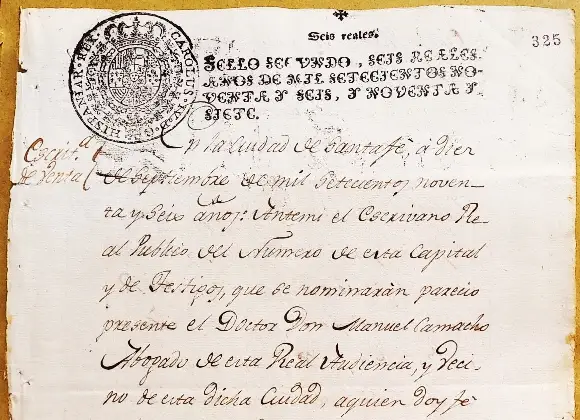 Seis reales.
325
SELLO SEGVNDO, SEIS REALES,
AÑOS DE MIL SETECIENTOS NO-
VENTA Y SEIS, Y NOVENTA Y
SIETE.
CAROLUS IV. D. G. HISPANIAR. REX.
Escrit.ª
de Venta
En la Ciudad de Santafé, á Diez
de septiembre de mil setecientos, noven-
ta y seis años: Antemi el Escrivano Re-
al Publico del Numero de esta Capital
y de Testigos, que se nominarán parecio
presente el Doctor Don Manuel Camacho
Abogado de esta Real Audiencia, y Veci-
no de esta dicha Ciudad, aquien doy fé